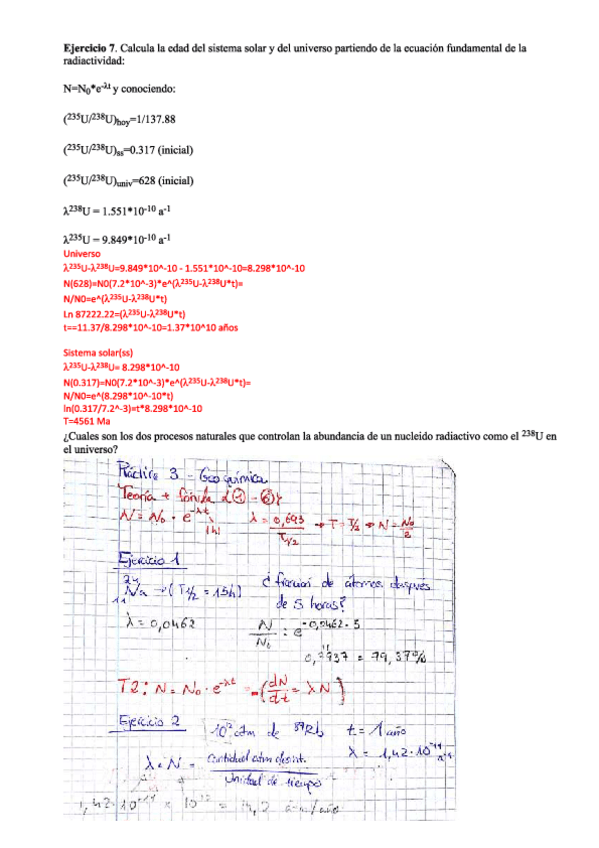 Ejercicio 7. Calcula la edad del sistema solar y del universo partiendo de la ecuación fundamental de la
radiactividad:
N=N₀*e^-λt y conociendo:
(²³⁵U/²³⁸U)hoy=1/137.88
(²³⁵U/²³⁸U)ss=0.317 (inicial)
(²³⁵U/²³⁸U)univ=628 (inicial)
λ²³⁸U = 1.551*10⁻¹⁰ a⁻¹
λ²³⁵U = 9.849*10⁻¹⁰ a⁻¹
Universo
λ²³⁵U-λ²³⁸U=9.849*10^-10 - 1.551*10^-10=8.298*10^-10
N(628)=N0(7.2*10^-3)*e^(λ²³⁵U-λ²³⁸U*t)=
N/N0=e^(λ²³⁵U-λ²³⁸U*t)
Ln 87222.22=(λ²³⁵U-λ²³⁸U*t)
t==11.37/8.298*10^-10=1.37*10^10 años
Sistema solar(ss)
λ²³⁵U-λ²³⁸U= 8.298*10^-10
N(0.317)=N0(7.2*10^-3)*e^(λ²³⁵U-λ²³⁸U*t)=
N/N0=e^(8.298*10^-10*t)
ln(0.317/7.2^-3)=t*8.298*10^-10
T=4561 Ma
¿Cuales son los dos procesos naturales que controlan la abundancia de un nucleido radiactivo como el ²³⁸U en
el universo?
Práctica 3 - Geoquímica
Teoría +
N = N₀ · e^-λt λ = 0,693 / T1/2 → T = T/2 → N = N₀/2
Ejercicio 1
²⁴₁₁Na → (T1/2 = 15h) ¿fracción de átomos después
de 5 horas?
λ = 0,0462 N/N₀ : e^-0,0462·5
0,7937 = 79,37%
T2: N = N₀ · e^-λt - (dN/dt = λN)
Ejercicio 2 10¹² atm de ⁸⁷Rb t = 1 año
λ = 1,42·10⁻¹¹ a⁻¹
λ · N = cantidad atm desint. / Unidad de tiempo
1,42·10⁻¹¹ x 10¹² = 14,2 atm/año